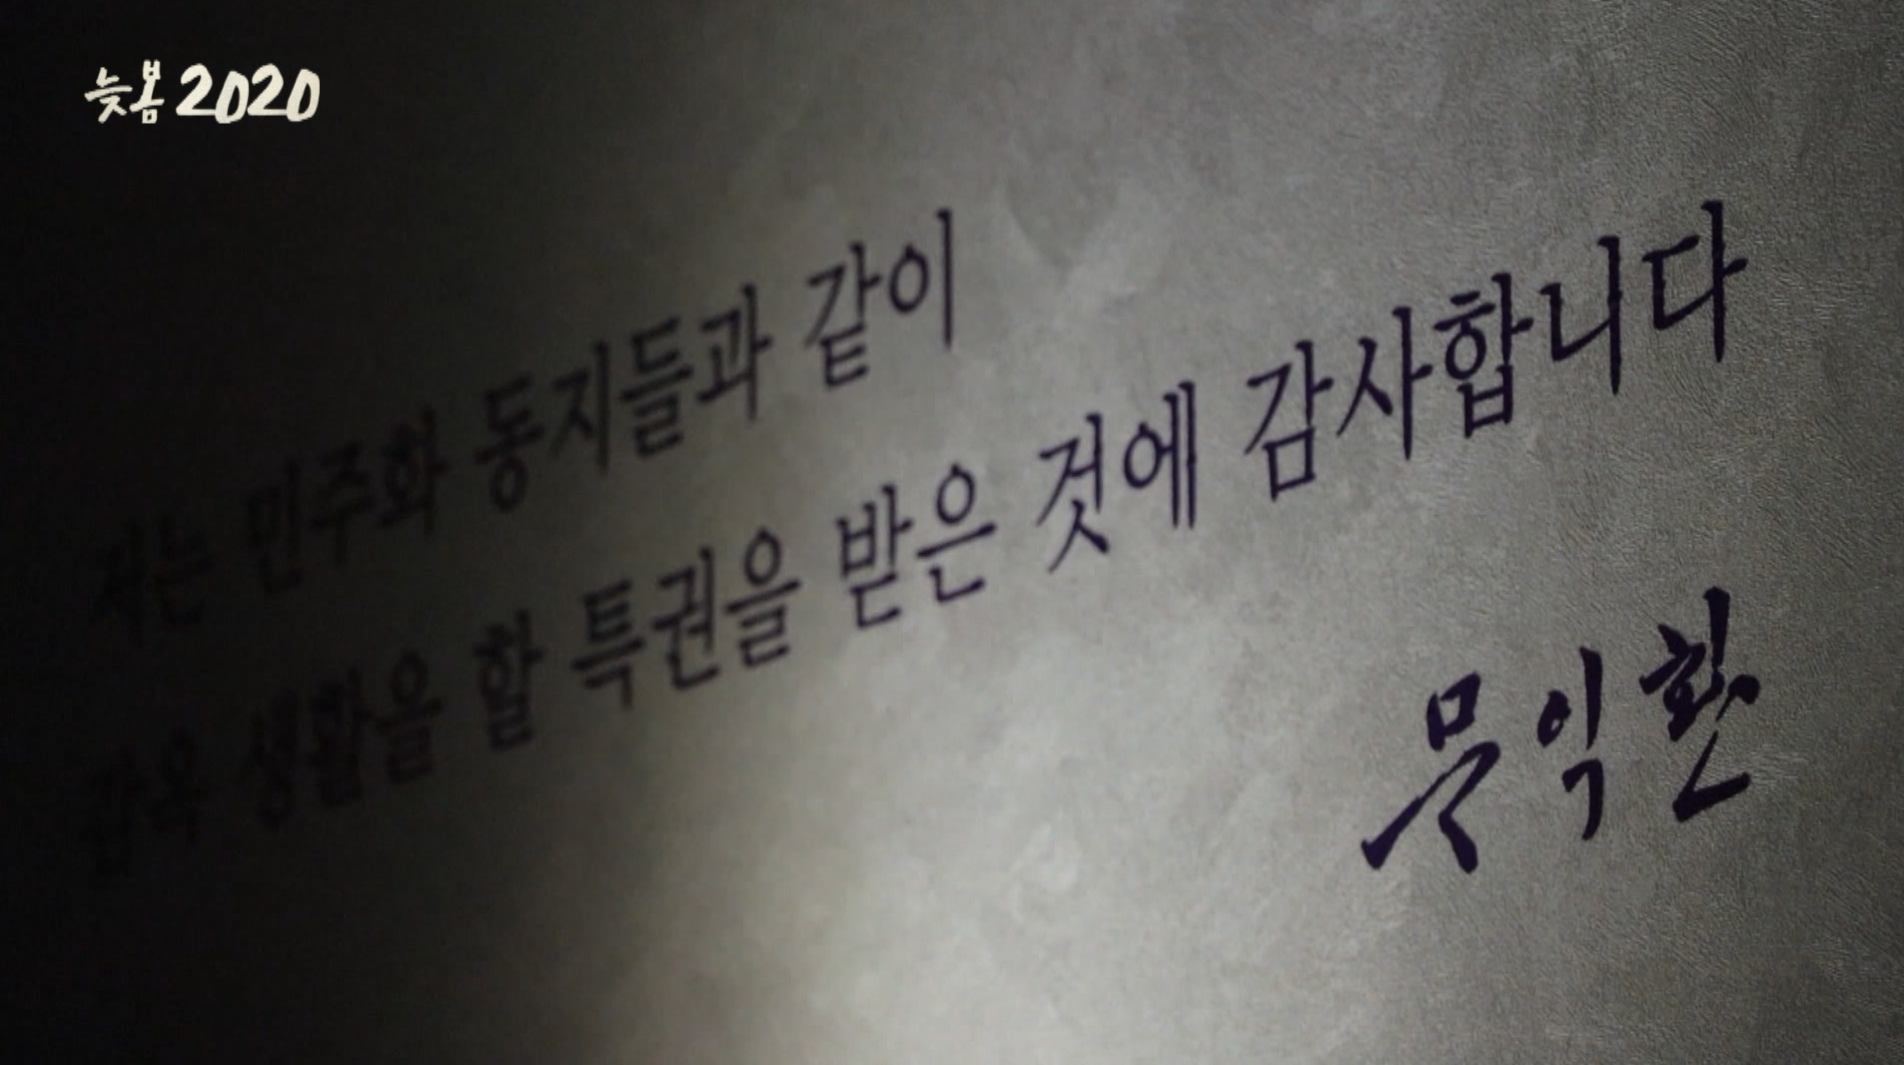 늦봄 2020
저는 민주화 동지들과 같이
감옥 생활을 할 특권을 받은 것에 감사합니다
문익환